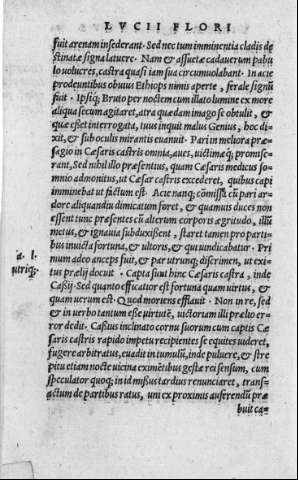 LVCII FLORI
fuit arenam insederant. Sed nec tum imminentia cladis de
stinatæ signa latuere. Nam & assuetæ cadauerum pabu
lo uolucres, castra quasi iam sua circumuolabant. In acië
prodeuntibus obuius Ethiops nimis aperte, ferale signũ
fuit. Ipsiq; Bruto per noctem cum illato lumine ex more
aliqua secum agitaret, atra quædam imago se obtulit, &
quæ esset interrogata, tuus inquit malus Genius, hoc di-
xit, & sub oculis mirantis euanuit. Pari in meliora præ-
sagio in Cæsaris castris omnia, aues, uictimæq; promise-
rant, Sed nihil illo præsentius, quam Cæsaris medicus so-
mnio admonitus, ut Cæsar castris excederet, quibus capi
imminebat ut factum est. Acie nanq; cõmissa cũ pari ar-
dore aliquandiu dimicatum foret, & quamuis duces non
essent tunc præsentes cũ alterum corporis ægritudo, illũ
metus, & ignauia subduxissent, staret tamen pro parti-
bus inuicta fortuna, & ultoris, & qui uindicabatur. Pri
mum adeo anceps fuit, & par utrunq; discrimen, ut exi
tus prælij docuit. Capta sunt hinc Cæsaris castra, inde
Cassij. Sed quanto efficatior est fortuna quam uirtus, &
quam uerum est. Quod moriens efflauit. Non in re, sed
& in uerbo tantum esse uirtutẽ, uictoriam illi prælio er-
ror dedit. Cassius inclinato cornu suorum cum captis Cæ
saris castris rapido impetu recipientes se equites uideret,
fugere arbitratus, euadit in tumulũ, inde puluere, & stre
pitu etiam nocte uicina eximẽtibus gestæ rei sensum, cum
speculator quoq; in id missus tardius renunciaret, trans-
actum de partibus ratus, uni ex proximis auferendũ præ
buit ca-
a. l.
utriq;